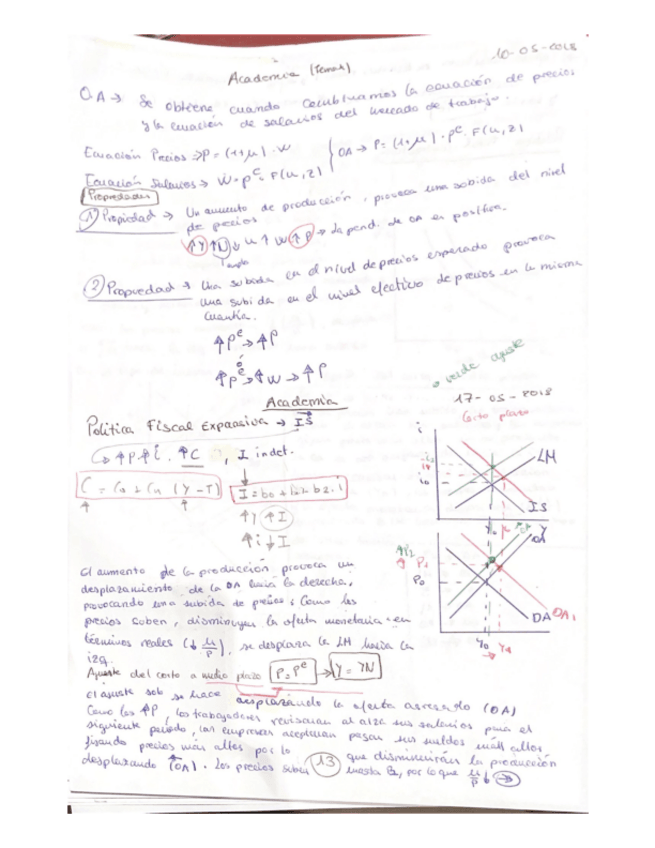 10-05-2018
Academia (Tema 9)
OA → Se obtiene cuando combinamos la ecuación de precios
y la ecuación de salarios del mercado de trabajo.
Ecuación Precios → P = (1+μ) · W
OA → P = (1+μ) · P^e · F(u, z)
Ecuación Salarios → W = P^e · F(u, z)
Propiedades
① Propiedad → Un aumento de producción, provoca una subida del nivel
de precios.
↑Y ↑N ↓u ↑W ↑P → la pend. de OA es positiva.
② Propiedad → Una subida en el nivel de precios esperado provoca
una subida en el nivel efectivo de precios en la misma
cuantía.
↑P^e → ↑P
ó
↑P^e → ↑W → ↑P
→ verde ajuste
Academia
17-05-2018
Corto plazo
Política Fiscal Expansiva → IS
↳ ↑P ↑i . ↑C , I indet.
C = C0 + C1 (Y - T)
↑ ↑
↑Y ↑I
↑i ↓I
i
LM
i1
i0
IS
Y0
Y
OA
↑P2
P1
P0
DA
DA1
Y0 → Y1
El aumento de la producción provoca un
desplazamiento de la DA hacia la derecha,
provocando una subida de precios. Como los
precios suben, disminuyen la oferta monetaria en
términos reales (↓ M/P), se desplaza la LM hacia la
izq.
Ajuste del corto a medio plazo P = P^e → Y = YN
El ajuste se hace desplazando la oferta agregada (OA)
Como los ↑P, los trabajadores revisarían al alza sus salarios para el
siguiente periodo, las empresas aceptarían pagar sus sueldos más altos
fijando precios más altos por lo que disminuirán la producción
desplazando (OA). Los precios suben 13 hasta P2, por lo que M/P ↓ →